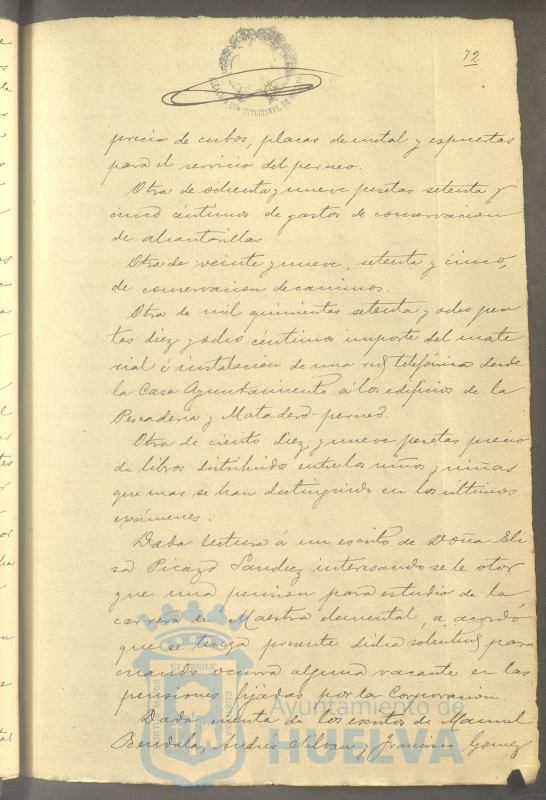 72
precio de cubos, placas de metal y espuertas
para el servicio del perneo.
Otra de ochenta y nueve pesetas setenta y
cinco céntimos de gastos de conservacion
de alcantarillas
Otra de veinte y nueve, setenta y cinco,
de conservacion de caminos.
Otra de mil quinientas setenta y ocho pese
tas diez y ocho céntimos importe del mate
rial é instalacion de una red telefónica desde
la Casa Ayuntamiento á los edificios de la
Pescaderia y Matadero-perneo.
Otra de ciento diez y nueve pesetas precio
de libros distribuidos entre los niños y niñas
que mas se han distinguido en los últimos
exámenes.
Dada lectura á un escrito de Doña Eli
sa Picazo Sanchez interesando se le otor
gue una pension para estudio de la
carrera de Maestra elemental, se acordó
que se tenga presente dicha solicitud para
cuando ocurra alguna vacante en las
pensiones fijadas por la Corporacion
Dada cuenta de los escritos de Manuel
Andrés Silvan y Francisco Gomez
Ayuntamiento de
HUELVA